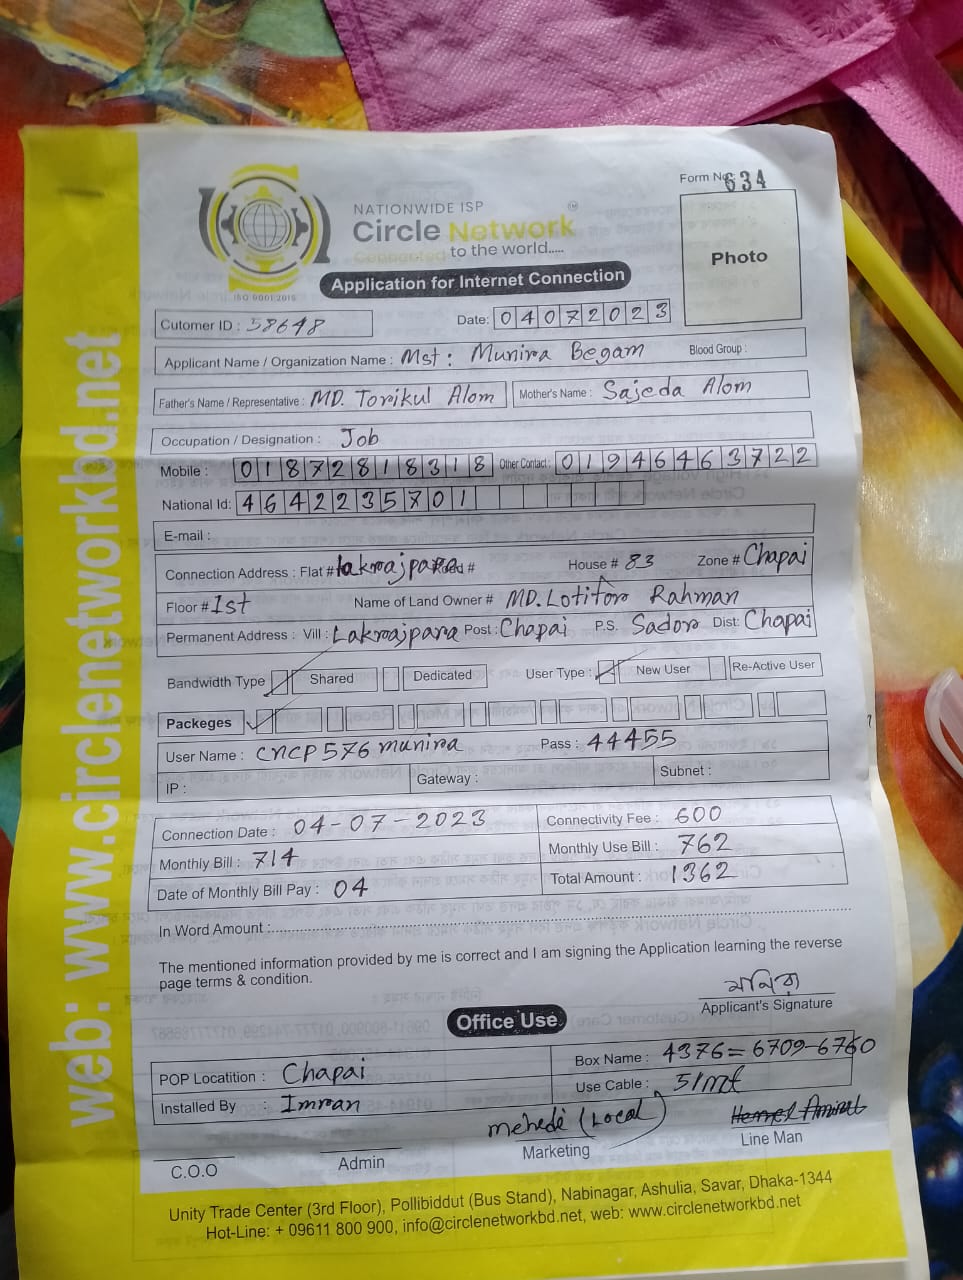 Form No. 634
NATIONWIDE ISP
Circle Network
Connected to the world.....
ISO 9001:2015
Photo
Application for Internet Connection
Cutomer ID : 58648
Date: 04072023
Applicant Name / Organization Name : Mst: Munira Begam Blood Group :
Father's Name / Representative : MD. Torikul Alom Mother's Name : Sajeda Alom
Occupation / Designation : Job
Mobile : 01872818318 Other Contact : 01946463722
National Id: 4642235701
E-mail :
Connection Address : Flat # Lakroajpara Road # House # 83 Zone # Chapai
Floor # 1st Name of Land Owner # MD. Lotifor Rahman
Permanent Address : Vill : Lakroajpara Post : Chapai P.S. Sador Dist: Chapai
Bandwidth Type Shared Dedicated User Type : New User Re-Active User
Packeges
User Name : CNCP576munira Pass : 44455
IP : Gateway : Subnet :
Connection Date : 04-07-2023 Connectivity Fee : 600
Monthly Bill : 714 Monthly Use Bill : 762
Date of Monthly Bill Pay : 04 Total Amount : 1362
In Word Amount :
The mentioned information provided by me is correct and I am signing the Application learning the reverse
page terms & condition.
মনিরা
Applicant's Signature
Office Use
POP Locatition : Chapai Box Name : 4376=6709-6760
Installed By : Imran Use Cable : 51mt
mehedi (Local)
C.O.O Admin Marketing Line Man
Unity Trade Center (3rd Floor), Pollibiddut (Bus Stand), Nabinagar, Ashulia, Savar, Dhaka-1344
Hot-Line: + 09611 800 900, info@circlenetworkbd.net, web: www.circlenetworkbd.net
web: www.circlenetworkbd.net